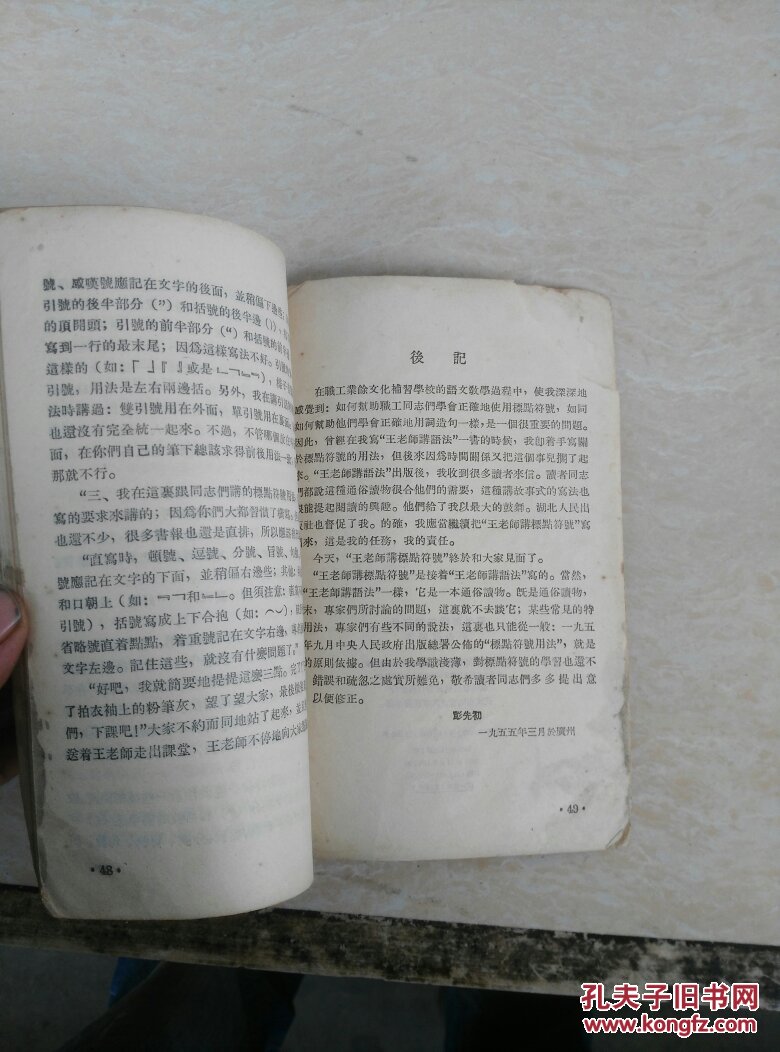 號、感嘆號應記在文字的後面，並稍偏下邊些；
引號的後半部分（”）和括號的後半邊（）），
的頂開頭；引號的前半部分（“）和括號的前半
寫到一行的最末尾；因爲這樣寫法不好。引號
這樣的（如：「」『』或是﹁﹂﹃﹄），
引號，用法是左右兩邊括。另外，我在講引
法時講過：雙引號用在外面，單引號用在裏面，
也還沒有完全統一起來。不過，不管哪個
在你們自己的筆下總該求得前後用法一
那就不行。
“三、我在這裏跟同志們講的標點符號
寫的要求來講的；因爲你們大都習慣了橫寫。
也還不少，很多書報也還是直排，所以應
“直寫時，頓號、逗號、分號、冒號、句
號應記在文字的下面，並稍偏右邊些；其他：
和口朝上（如：﹁﹂和﹃﹄。但須注意：直
引號），括號寫成上下合抱（如：︵︶），
省略號直着點點，着重號記在文字右邊，
文字左邊。記住這些，就沒有什麽問題了。”
“好吧，我就簡要地提提這麽三點。完了
了拍衣袖上的粉筆灰，望了望大家，最後
們，下課吧！”大家不約而同地站了起來，並
送着王老師走出課堂，王老師不停地向大家
·48·
後記
在職工業餘文化補習學校的語文敎學過程中，使我深深地
感覺到：如何幫助職工同志們學會正確地使用標點符號，如同
如何幫助他們學會正確地用詞造句一樣，是一個很重要的問題。
因此，曾經在我寫“王老師講語法”一書的時候，我卽着手寫關
於標點符號的用法，但後來因爲時間關係又把這個事兒擱了起
來。“王老師講語法”出版後，我收到很多讀者來信。讀者同志
們都說這種通俗讀物很合他們的需要，這種講故事式的寫法也
很能提起閱讀的興趣。他們給了我以最大的鼓舞。湖北人民出
版社也督促了我。的確，我應當繼續把“王老師講標點符號”寫
來，這是我的任務，我的責任。
今天，“王老師講標點符號”終於和大家見面了。
“王老師講標點符號”是接着“王老師講語法”寫的。當然，
“王老師講語法”一樣，它是一本通俗讀物。旣是通俗讀物，
末，專家們所討論的問題，這裏就不去談它；某些常見的特
用法，專家們有些不同的說法，這裏也只能從一般：一九五
年九月中央人民政府出版總署公佈的“標點符號用法”，就是
的原則依據。但由於我學識淺薄，對標點符號的學習也還不
錯誤和疏忽之處實所難免，敬希讀者同志們多多提出意
以便修正。
彭先初
一九五五年三月於廣州
·49·
孔夫子旧书网
www.kongfz.com